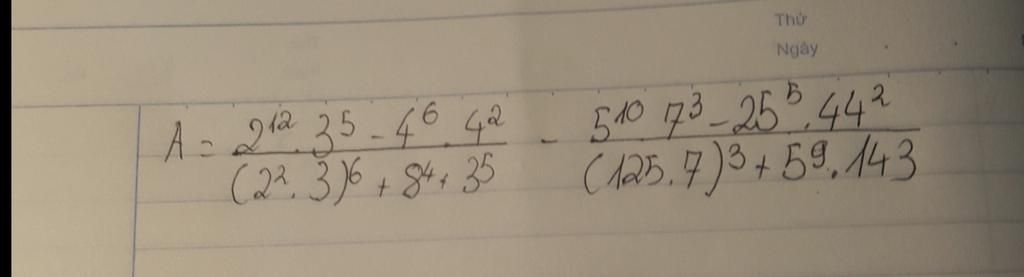 Thứ
Ngày
A = \frac{2^{12} . 3^5 - 4^6 . 4^2}{(2^2 . 3)^6 + 8^4 . 3^5} - \frac{5^{10} . 7^3 - 25^5 . 44^2}{(125 . 7)^3 + 5^9 . 143}